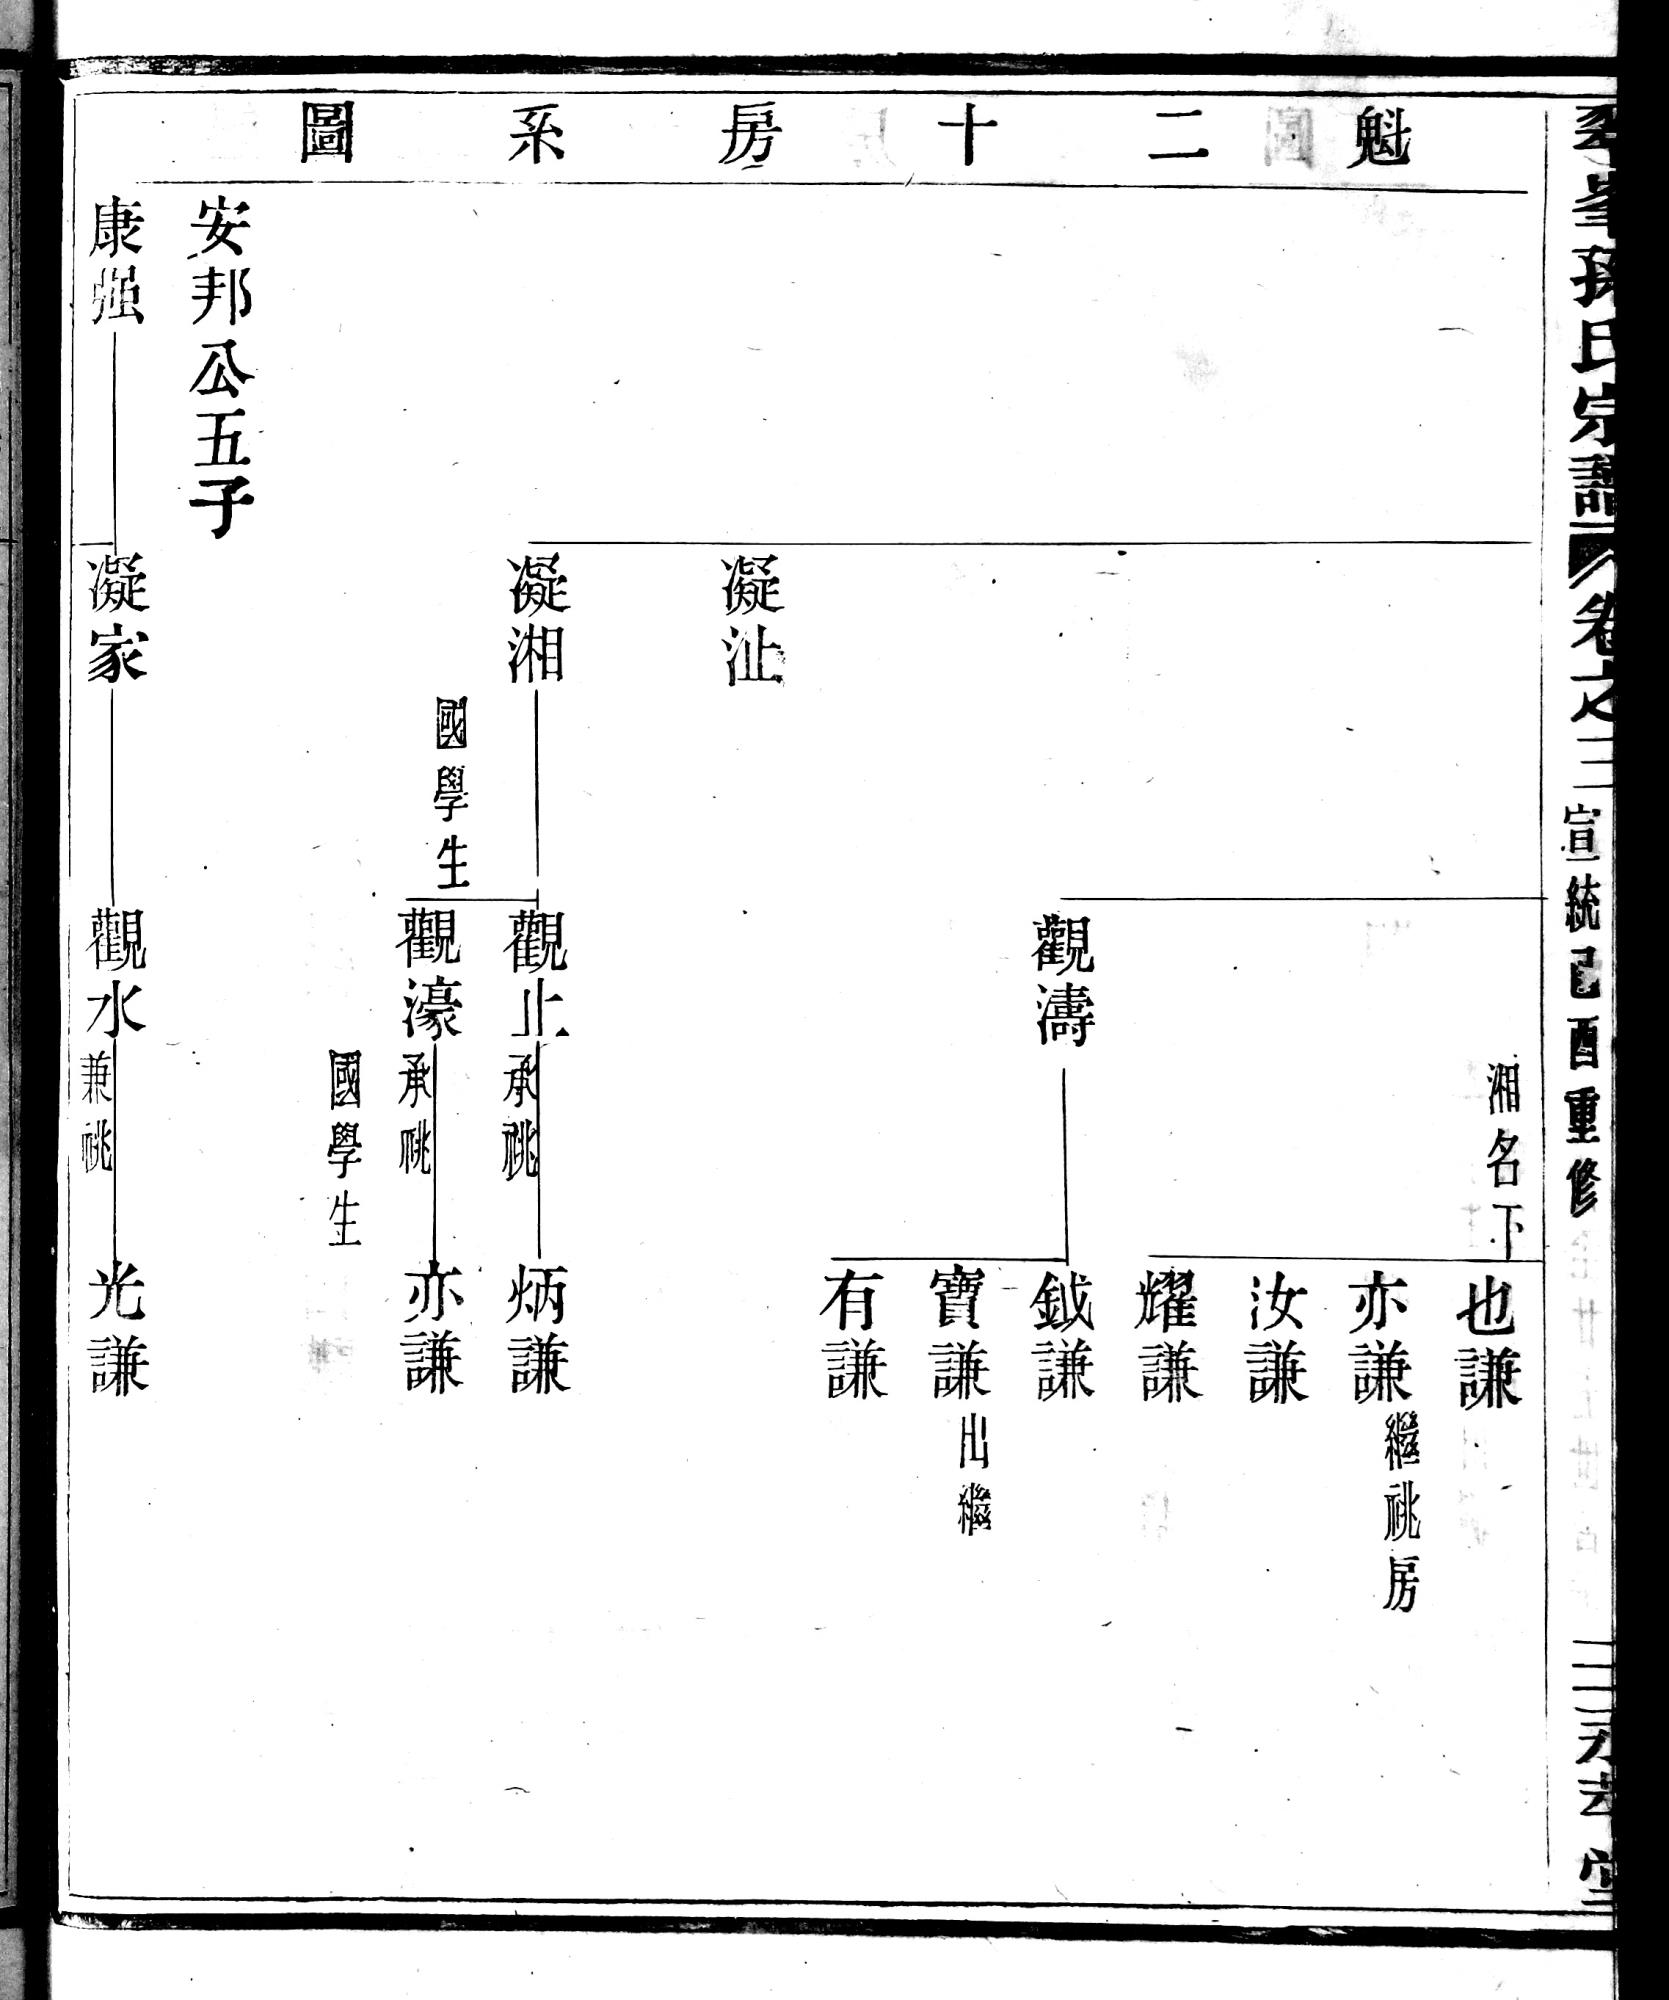 孫氏宗譜 卷之二 宣統己酉重修 堂
魁二十房系圖
湘名下
也謙
亦謙 繼祧房
汝謙
耀謙
觀濤 鉞謙
寶謙 出繼
有謙
凝沚
凝湘 觀止 承祧 炳謙
國學生
觀濠 承祧 亦謙
國學生
安邦公五子
康强 凝家 觀水 兼祧 光謙